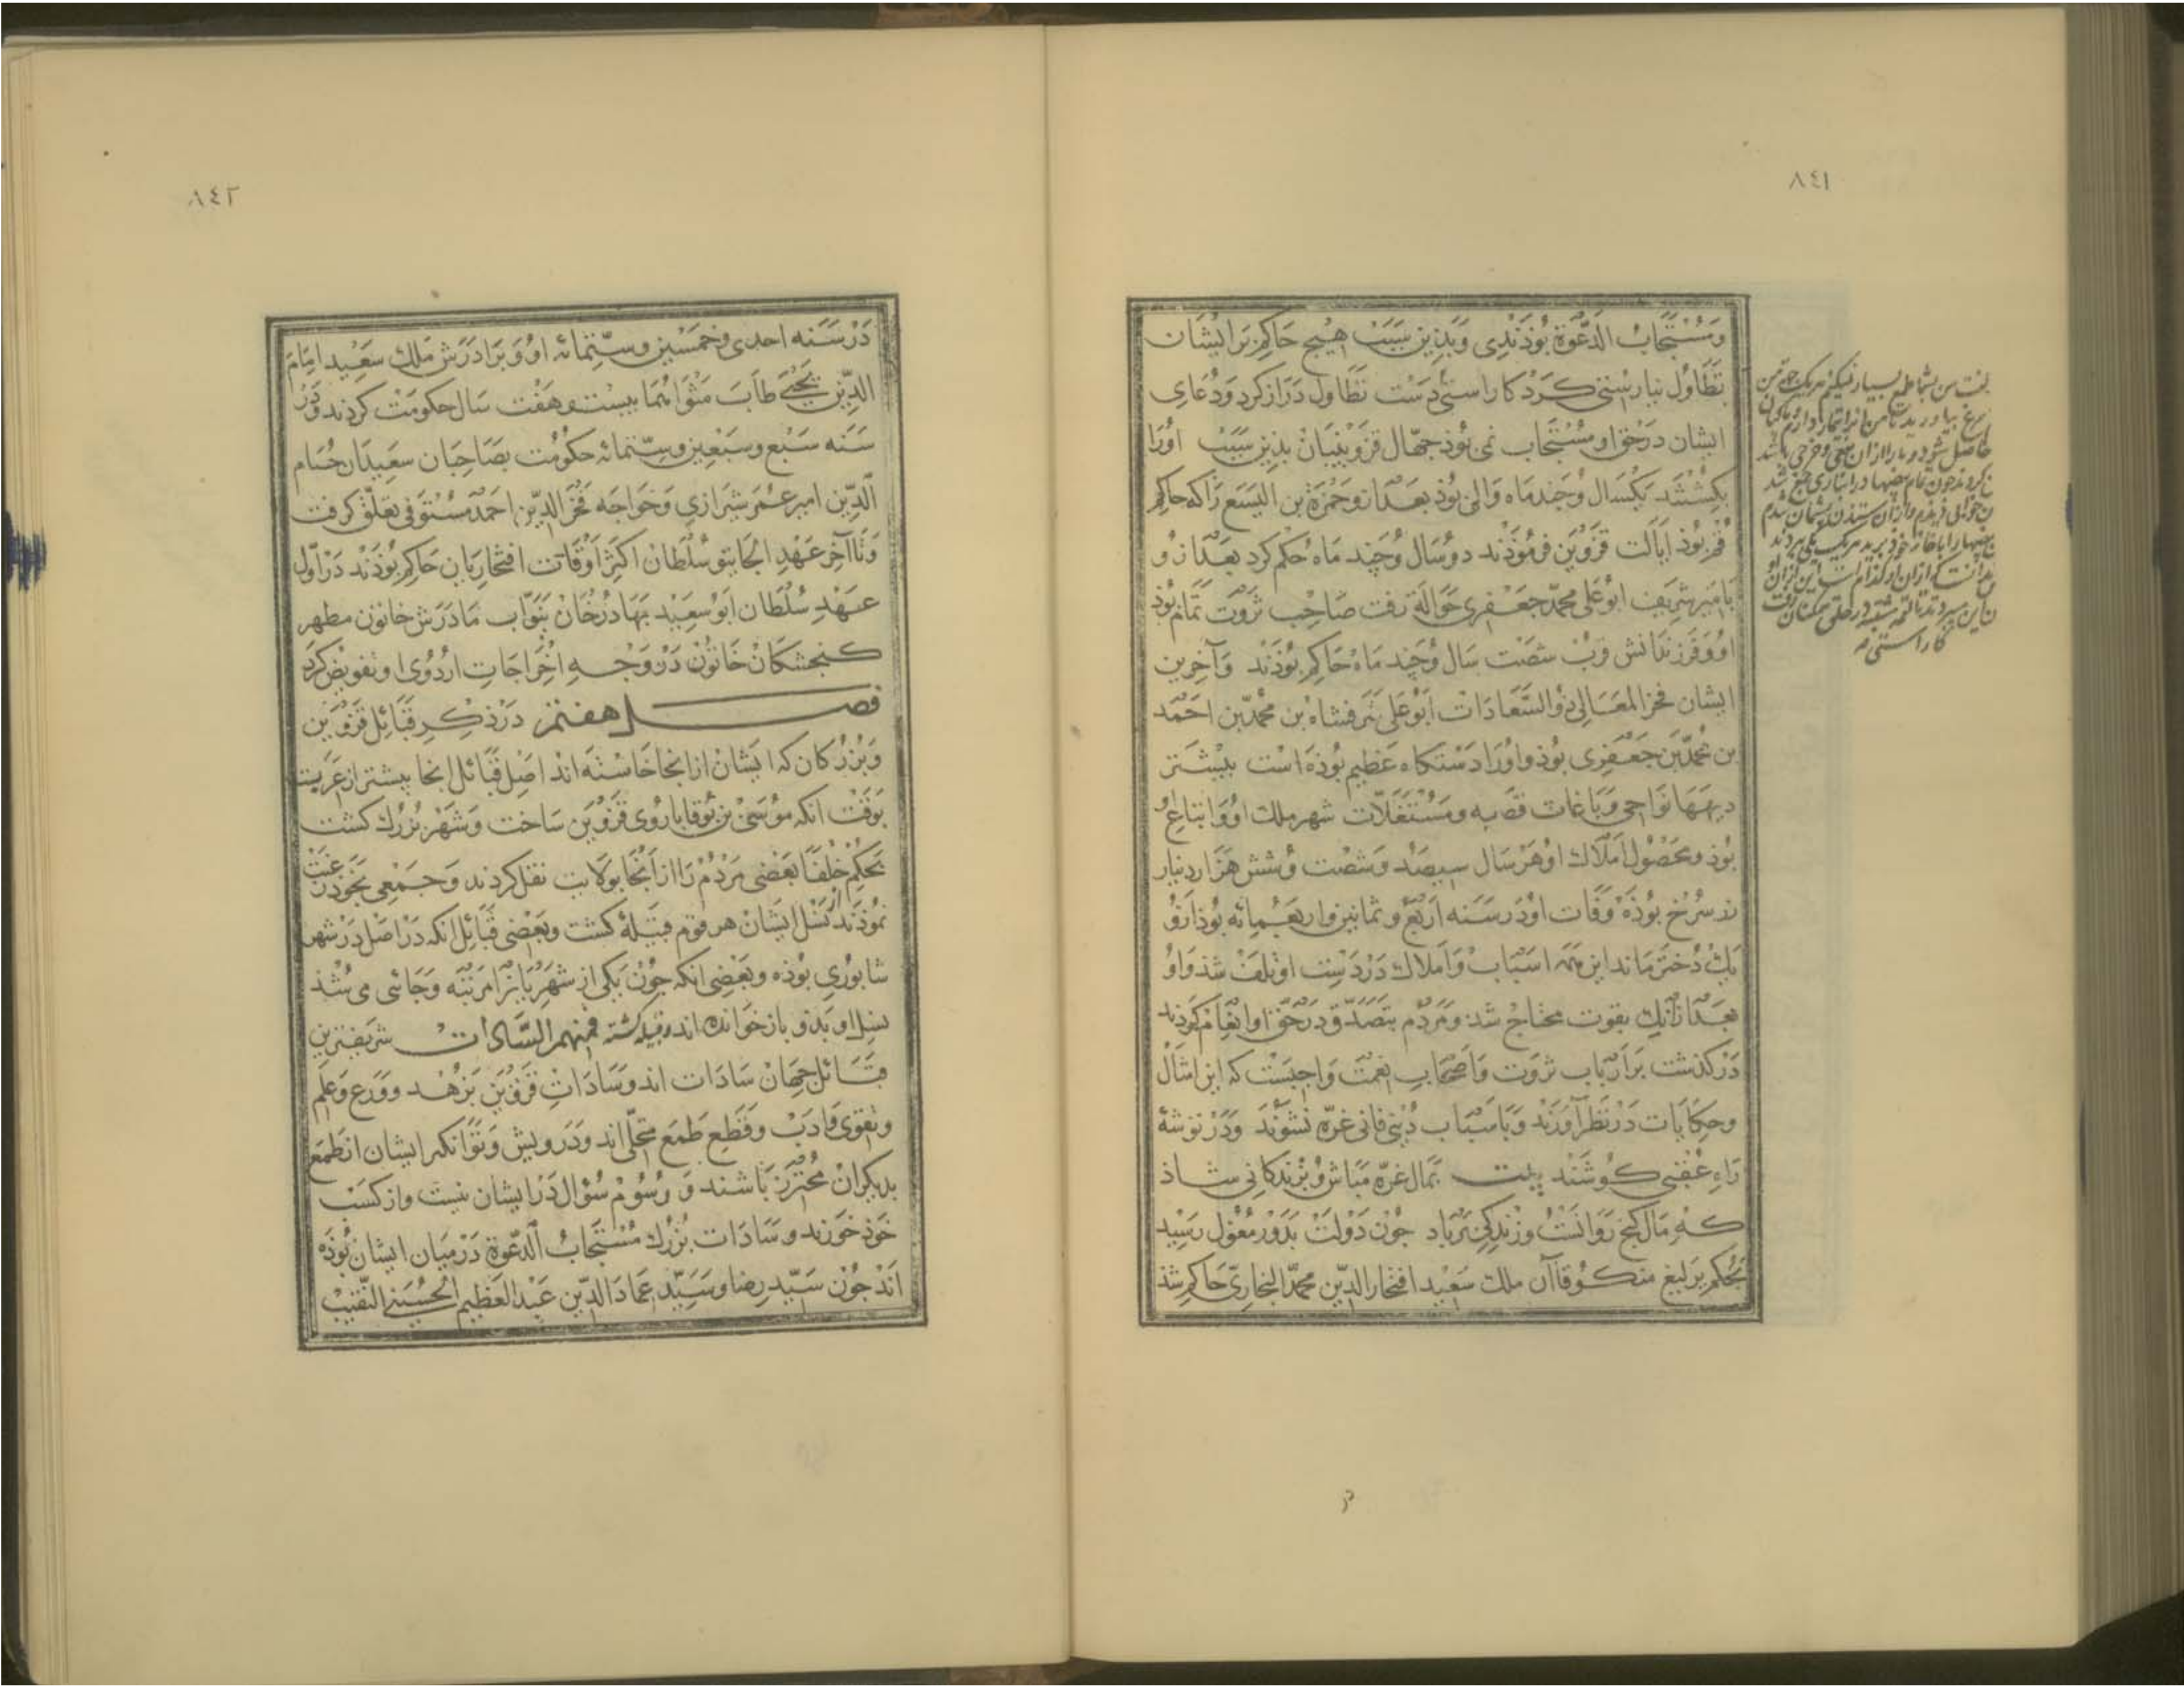 ٨٤١
وَمُسْتَجَابُ الدَّعْوَة بُوذَنْدِی وَبَذِین سَبَبْ هیْچ حَاکِم بَرایْشَان
تَطَاوُل نیارِسْتی کَرْد کاراستی دَسْت تطَاول دَراز کرد وَدُعَای
ایشان دَرحَق او مُسْتَجَاب نمی بُوذ جهّال قزوینیان بذین سَبَبْ اورَا
بکشتند یکسَال وُجَندماه وَالی بُوذ بعد ازو حَمْزة بن الیَسَع رَا که حاکم
قُم بُوذ ایالت قزوین فرموُذند دوسَال وُچند ماه حکم کرد بعَد ازو
بامیر شریف ابُوعلی محمّد جَعْفری حَوَالَة رفت صَاحِب ثروَت تمام بُوذ
اوُوَ فَرزندانش قرب شصْت سَال وُچند مَاه حَاکم بُوذَند وَآخرین
ایشان فخر المعَالی ذوُالسَّعَادَات ابُوعَلی شَرفشَاه بن محمّدبن احَمْد
بن مُحَمّدبن جَعْفری بُوذ واوُرَا دَسْتکاه عَظیم بُوذه است بیشَتر
دیهَهَا نوَاحِی وَبَاغات قصَبه ومُسْتَغَلّات شهر ملک اوُوَاتباع او
بُوذ ومحصُول امَلاک اوُ هر سَال سیصَد وَشصْت وُشش هَزار دینار
زر سُرخ بوُذه وَفَات اوُدَر سَنَه اَربَع وثمانین واربعمائه بُوذ ازو
یکْ دُختر مَاند این همَه اسبَاب وَاملاک دَر دَسْت او تَلف شذ وَاو
بعَد ازانک بقوت محتاج شد ومَردُم بتصَدّق دَرحَقّ او انعَام کردند
دَرکذشت بَر اَربَاب ثروَت وَاَصْحَابِ نعمَت واجبَست که این امثال
وحکایَات دَر نَظر آورَند وَباسبَاب دُنیی فانی غرّه نَشوَند وَدَر توشهٔ
رَاهِ عُقبی کوُشَند بیت بمَال غرّه مَبَاش وُ بزندکانی شاذ
که نه مَال کنج رَوانسْت وُ زندکی بَر باد جُون دَوْلتْ بدَوْر مُغول رَسید
بحُکم یَرلیغ منکوُقاآن ملک سَعِید افتخار الدّین محمّد البخاریّ حَاکِم شذ
کاراستی
٨٤٢
دَرْ سَنه احدی وخَمْسین وستّمائه اوُوَ بَرادَرَش مَلک سَعِید امام
الدّین یَحْیی طَابَ مَثْوَاهُمَا بیست وهَفْت سَال حکومَتْ کردند وَدَر
سَنه سَبْع وسَبْعین وستّمائه حکوُمَت بصَاحِبَان سَعیدَان حُسَام
الّدین امیر عُمَر شیرازی وَخواجَه فخرالدّین احمَد مسْتَوفی تعلّق کرفت
وَتا آخر عَهْدِ الجایتو سُلطَانْ اکثر اوْقات افتخاریَان حَاکِم بُوذَنْد دَر اوّل
عهْدِ سُلْطَان ابُوسَعِید بهَادُرخَان بنوّاب مَادَرش خاتون مطهر
کنجشکان خَاتون دَر وَجهِ اخْرَاجَاتِ اردُوی او تفویض کرَد
فصل هفتم دَر ذِکرِ قبَائل قزوُین
وَبُزُرکان که ایشَانْ از انجا خاسته اند اصَل قبَائل انجا بیشتر از عَرَبست
بوَقتْ انکه مُوسَی بن بُوقا باروُی قزوین سَاخت وَشهر بُزرک کشت
بحکم خلفَا بَعْضی مَردُم رَا از اَنجا بولایت نقل کردند وَجمْعِی بخوُد رغبت
نمُوذَند از نسْل ایشَانْ هر قوم قبیلهٔ کشت وبَعْضی قبَائل انکه دَر اصْل دَر شهر
شابُوری بُوذه وبَعْضی انکه جُونْ یکی از شهریَانْرا مَرتبه وَجَائی می شُذ
نسل او بَذو باز خوَانده اند وقبیله کشته فمنهم السَّادَات شریفترین
قبَائل جهَانْ سَادَات اند وسَادَاتِ قزوین بزهْد ووَرَع وَعِلم
وتقوی وَادَب وَقَطعِ طَمَع متحلّی اند وَدَرویش وَتوَانکر ایشان از طَمَع
بدیکران مُحْترز بَاشند وَ رسُوم سُؤال دَر ایشان نیست واز کسْب
خوَذ خَورند وسَادَات بُزرک مُسْتَجَابُ الدعْوَة دَر میان ایشان بُوذه
اَنَد جُونْ سیّد رضا وسَیّد عماد الدّین عَبْدالعَظیم الحُسَینی النّقیب